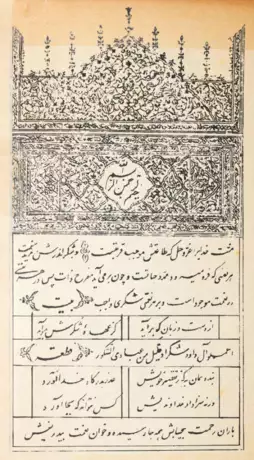 بسم الله الرحمن الرحیم
منت خدایرا عزوجل که طاعتش موجب قربتست و بشکر اندرش مزید نعمت
هر نفسی که فرو میرود ممد حیاتست و چون برمی آید مفرح ذات پس در هر نفسی
دو نعمت موجود است و بر هر نعمتی شکری واجب بیت
از دست و زبان که برآید کز عهده شکرش بدر آید
اعملوا آل داود شکرا و قلیل من عبادی الشکور قطعه
بنده همان به که ز تقصیر خویش عذر بدرگاه خدا آورد
ورنه سزاوار خداوندیش کس نتواند که بجا آورد
باران رحمت بیحسابش همه جا رسیده و خوان نعمت بیدریغش